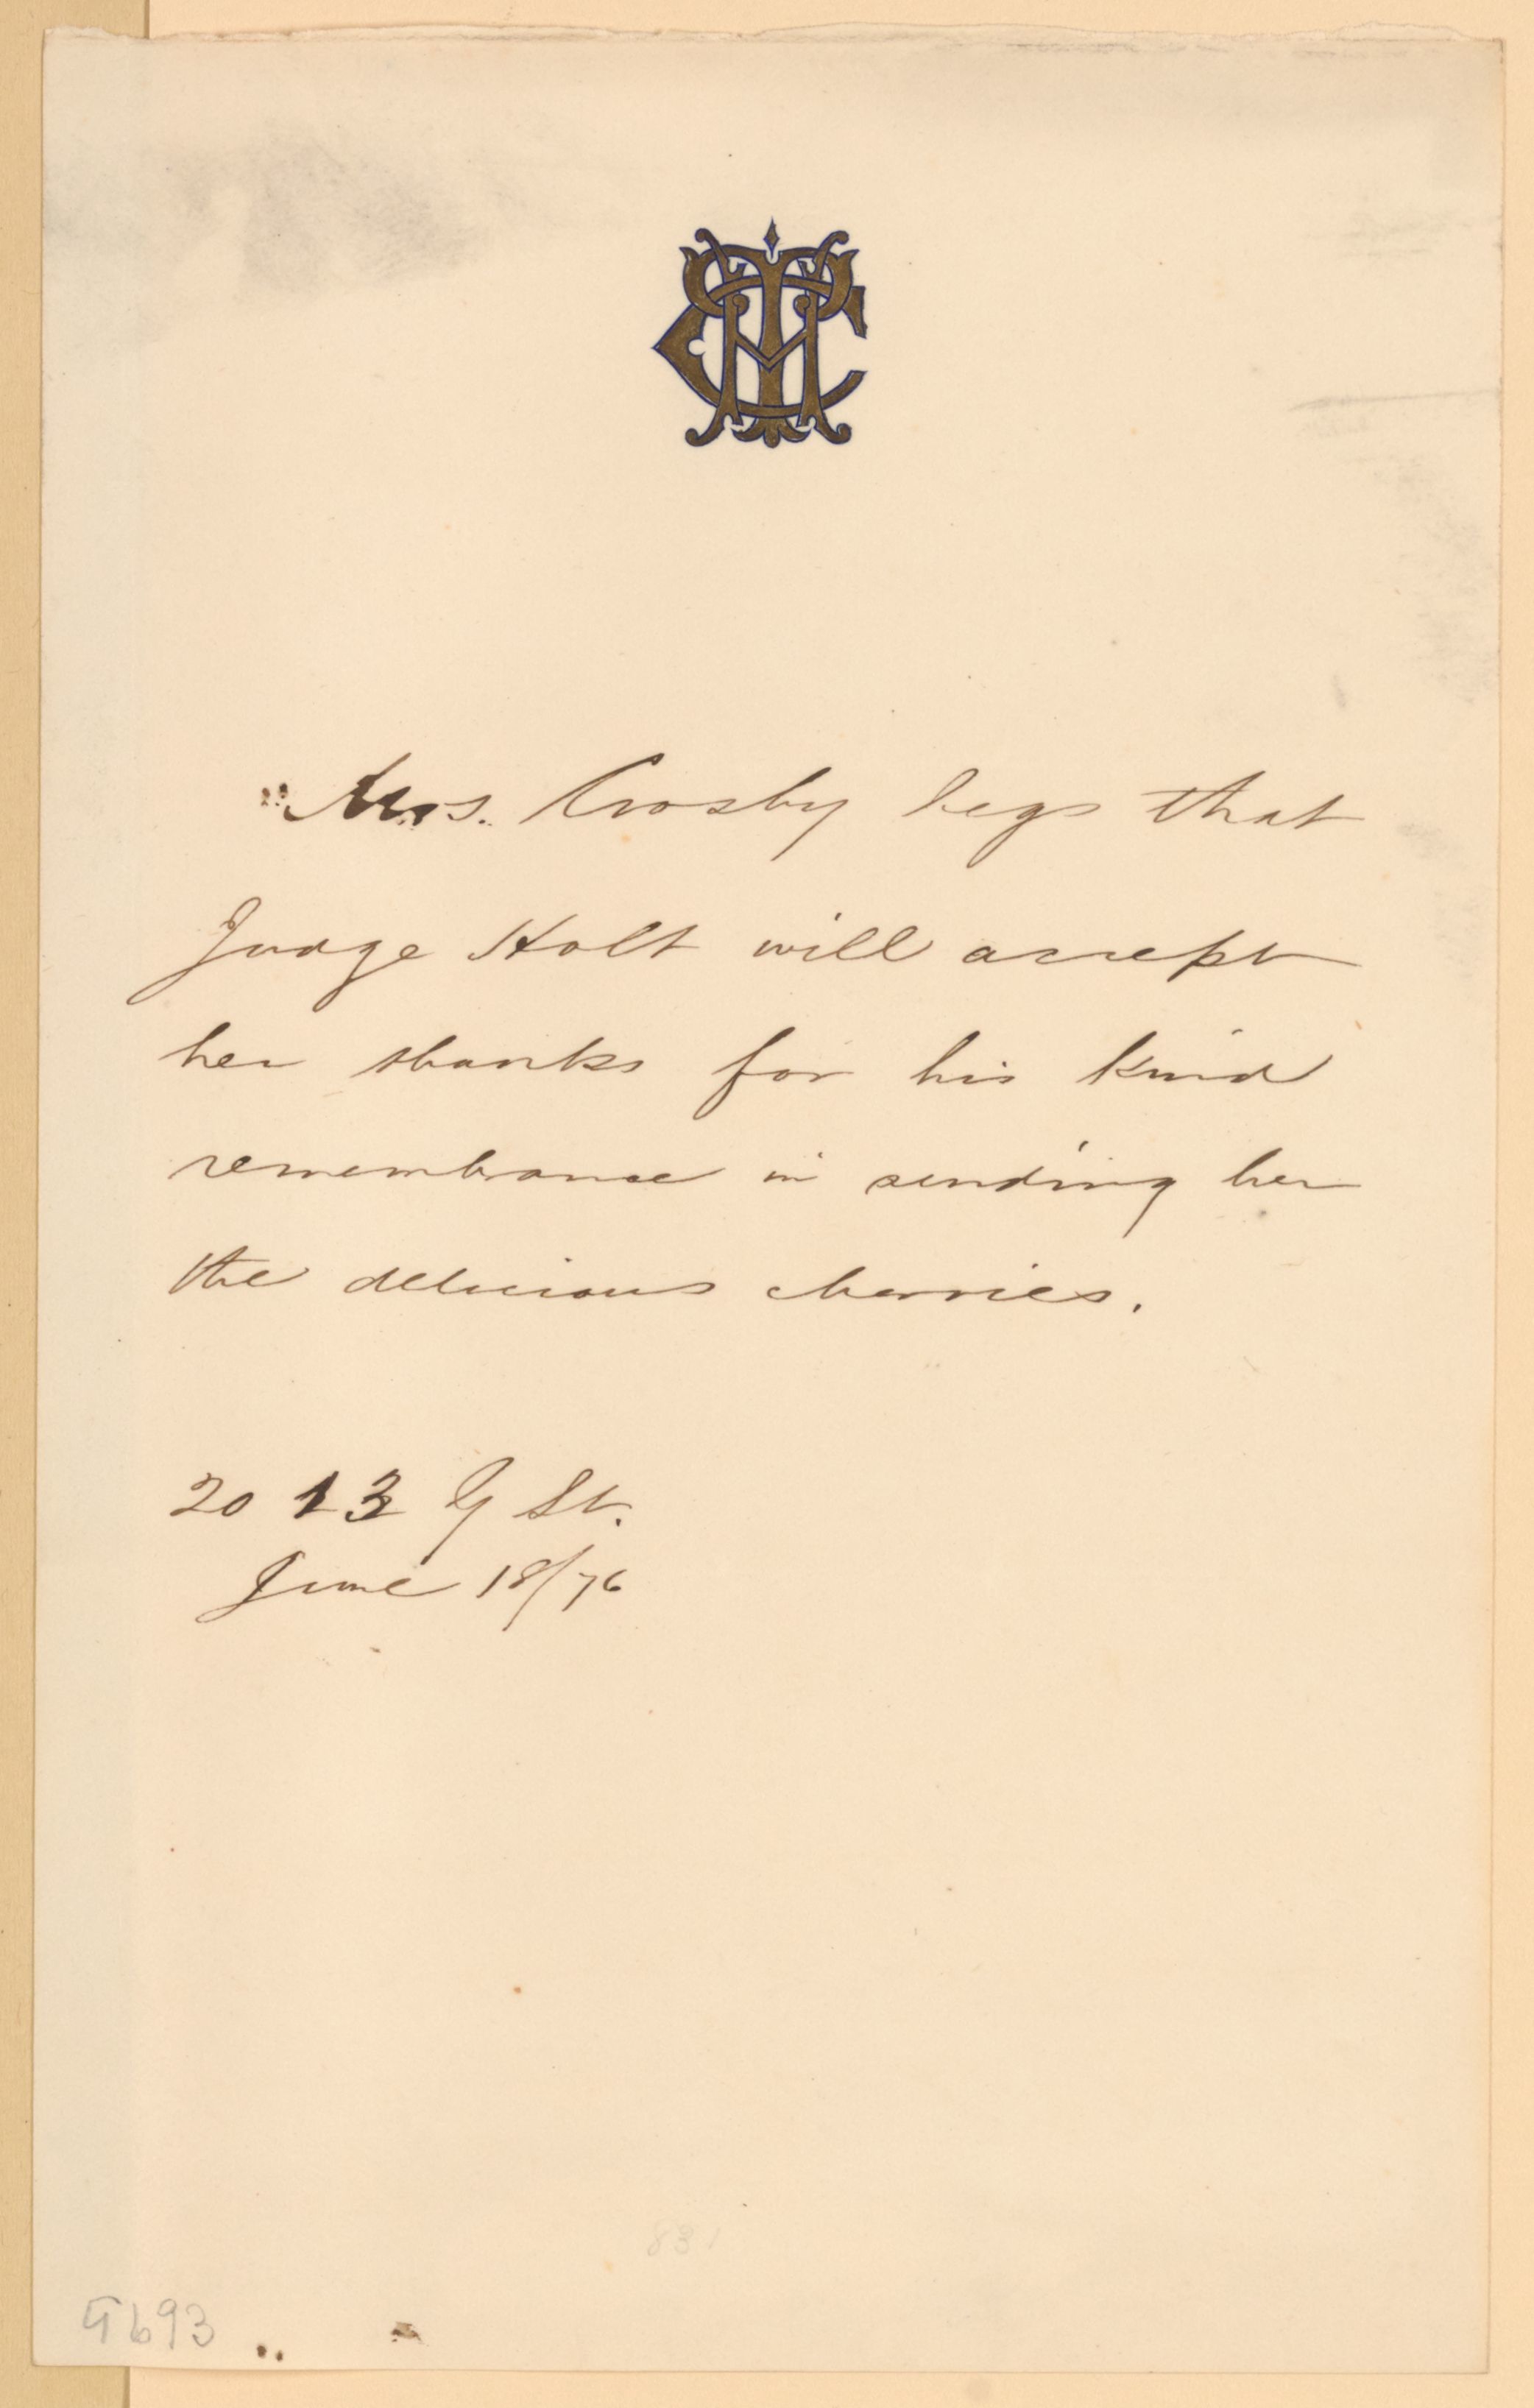 Mrs. Crosby begs that
Judge Holt will accept
her thanks for his kind
remembrance in sending her
the delicious cherries.
2013 G St.
June 18/76
831